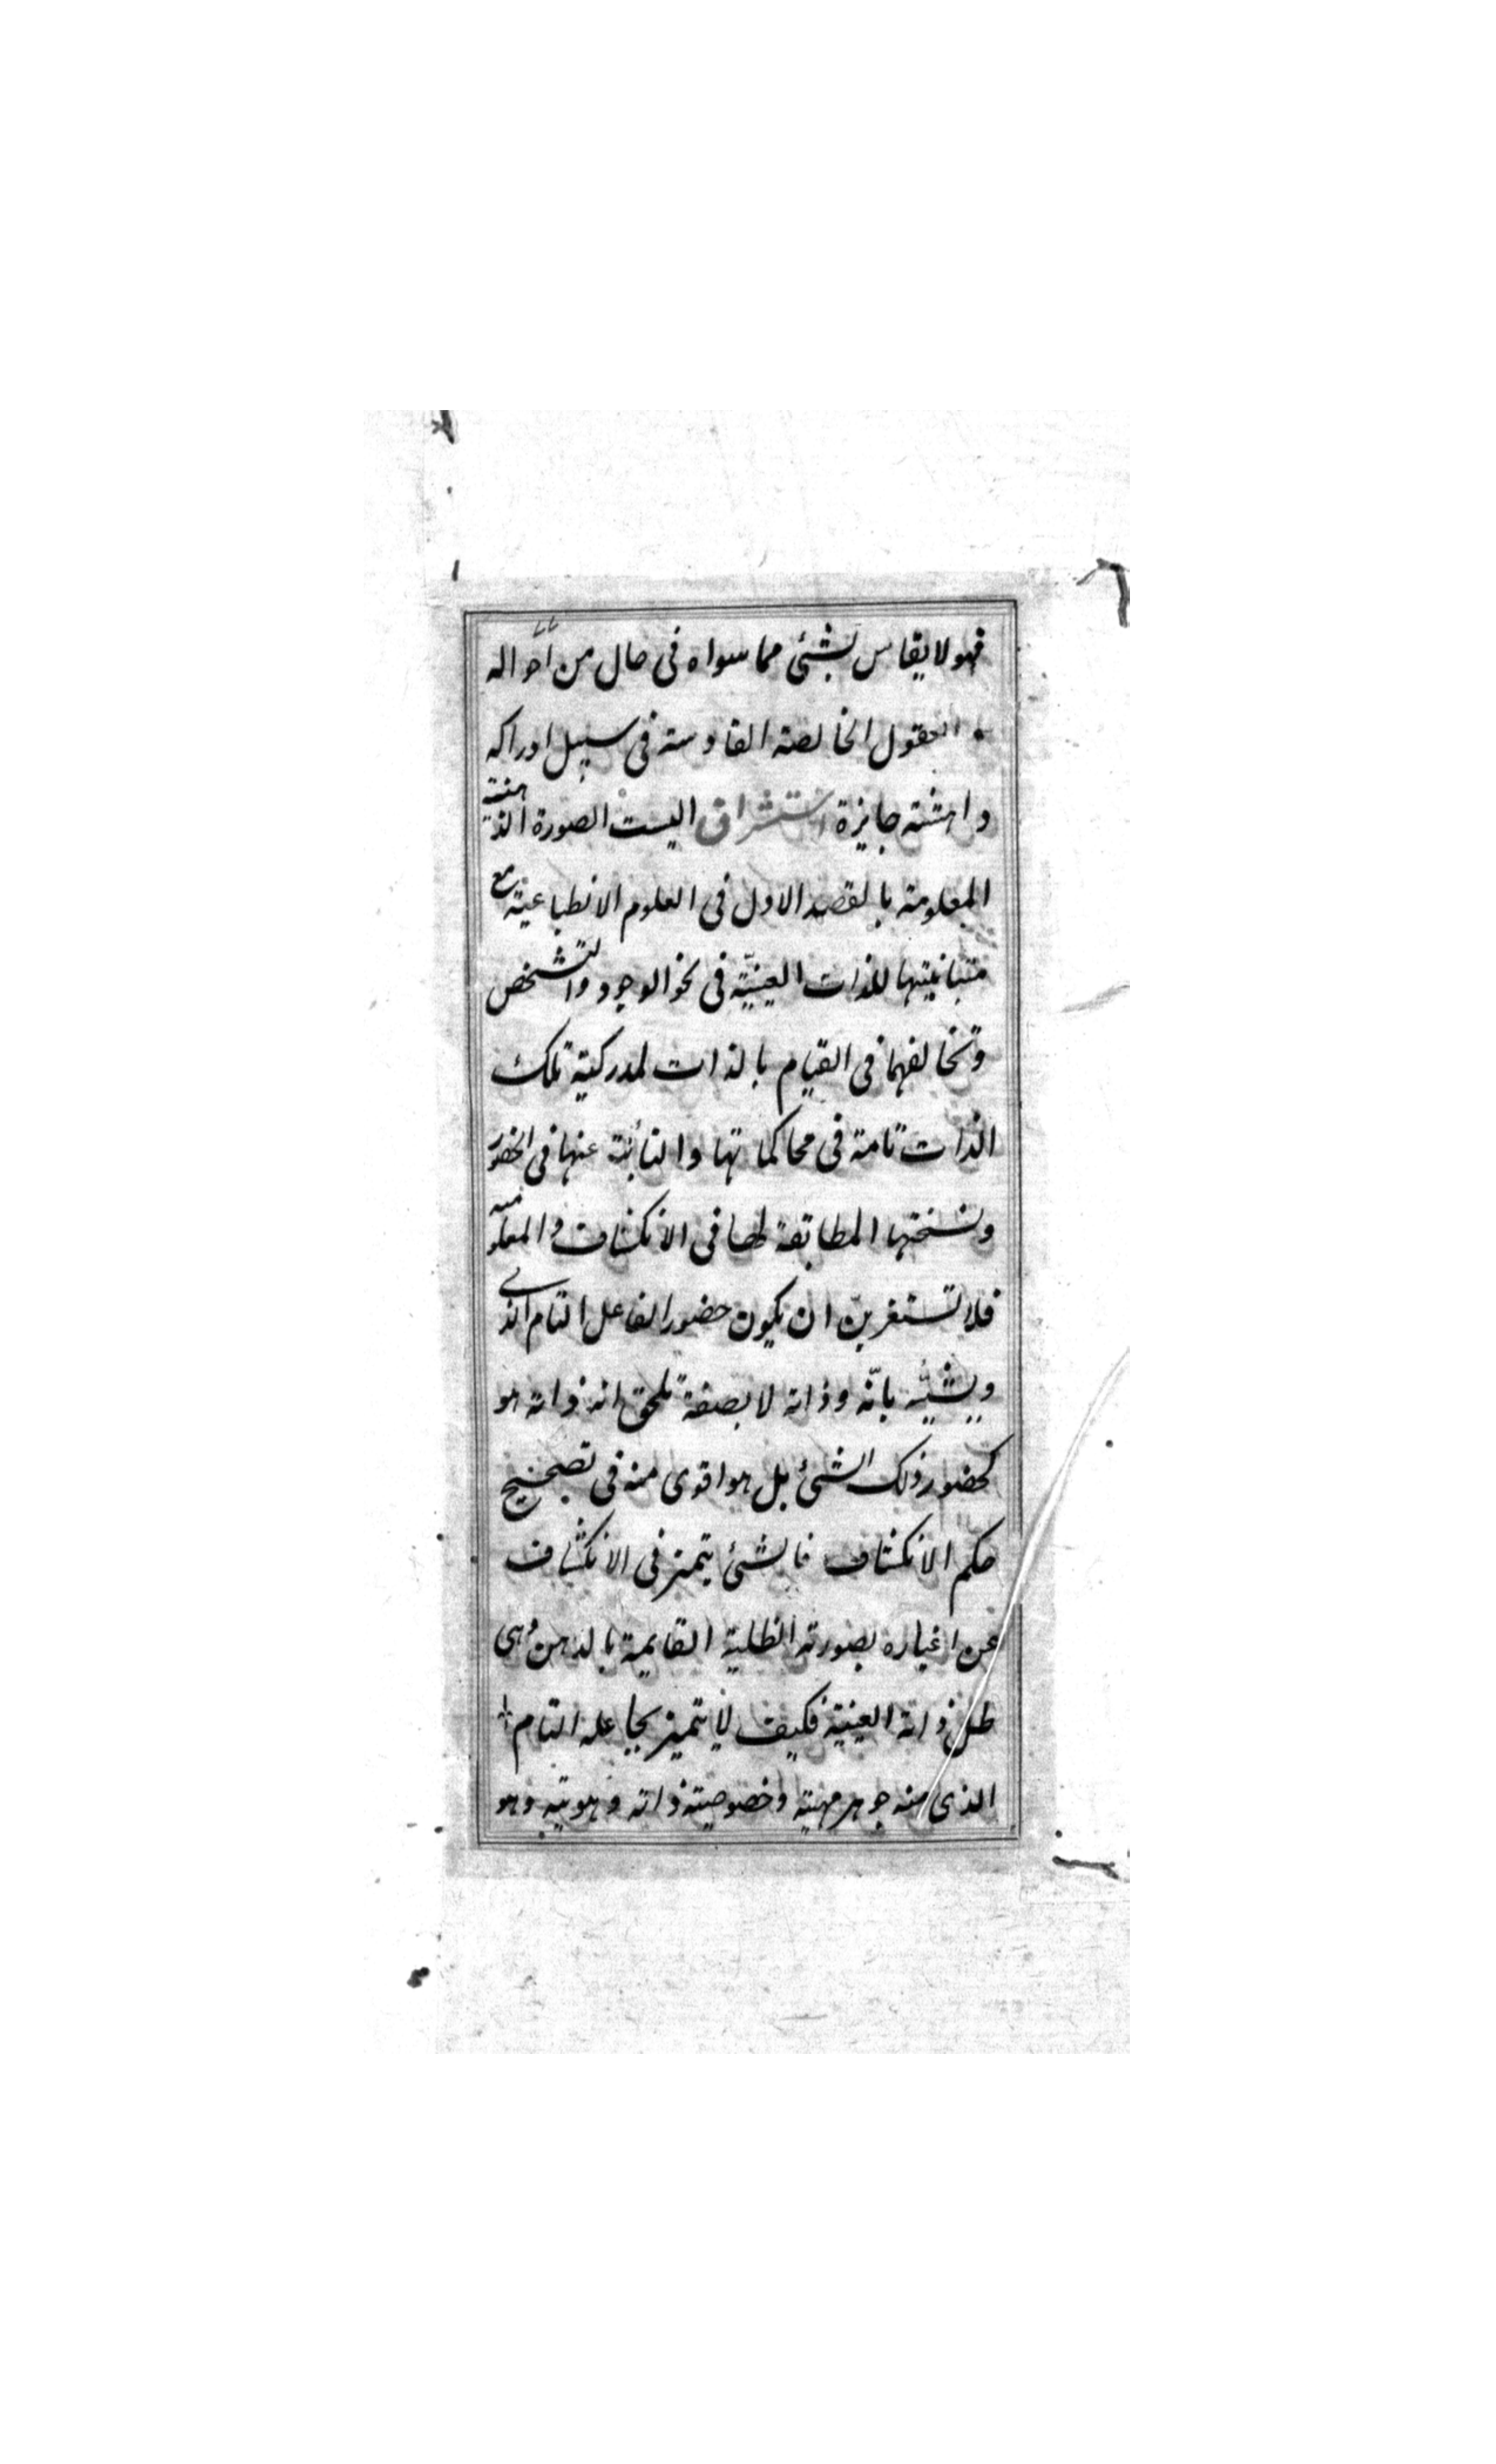 فهو لا يقاس بشئ مما سواه فى حال من احواله
العقول الخالصة القادسة فى سبيل ادراكه
داهشة حايزة استشراق اليست الصورة الذهنية
المعلومة بالقصد الاول فى العلوم الانطباعية مع
متباينيتها للذات العينية فى نحو الوجود والتشخص
وتخالفهما فى القيام بالذات لمدركية تلك
الذات تامة فى محاكاتها والنائبة عنها فى الحضور
ونسختها المطابقة لها فى الانكشاف والمعلومية
فلا تستغربن ان يكون حضور الفاعل التام الذى
بانه وذاته لا بصفة تلحق انه ذاته هو
كحضور ذلك الشئ بل هو اقوى منه فى تصحيح
حكم الانكشاف فالشئ يتميز فى الانكشاف
عن اغياره بصورته الظلية القايمة بالذهن وهى
ظل ذاته العينية فكيف لا يتميز بجاعله التام
الذى منه جوهر مهيته وخصوصيته ذاته وهويته وهو